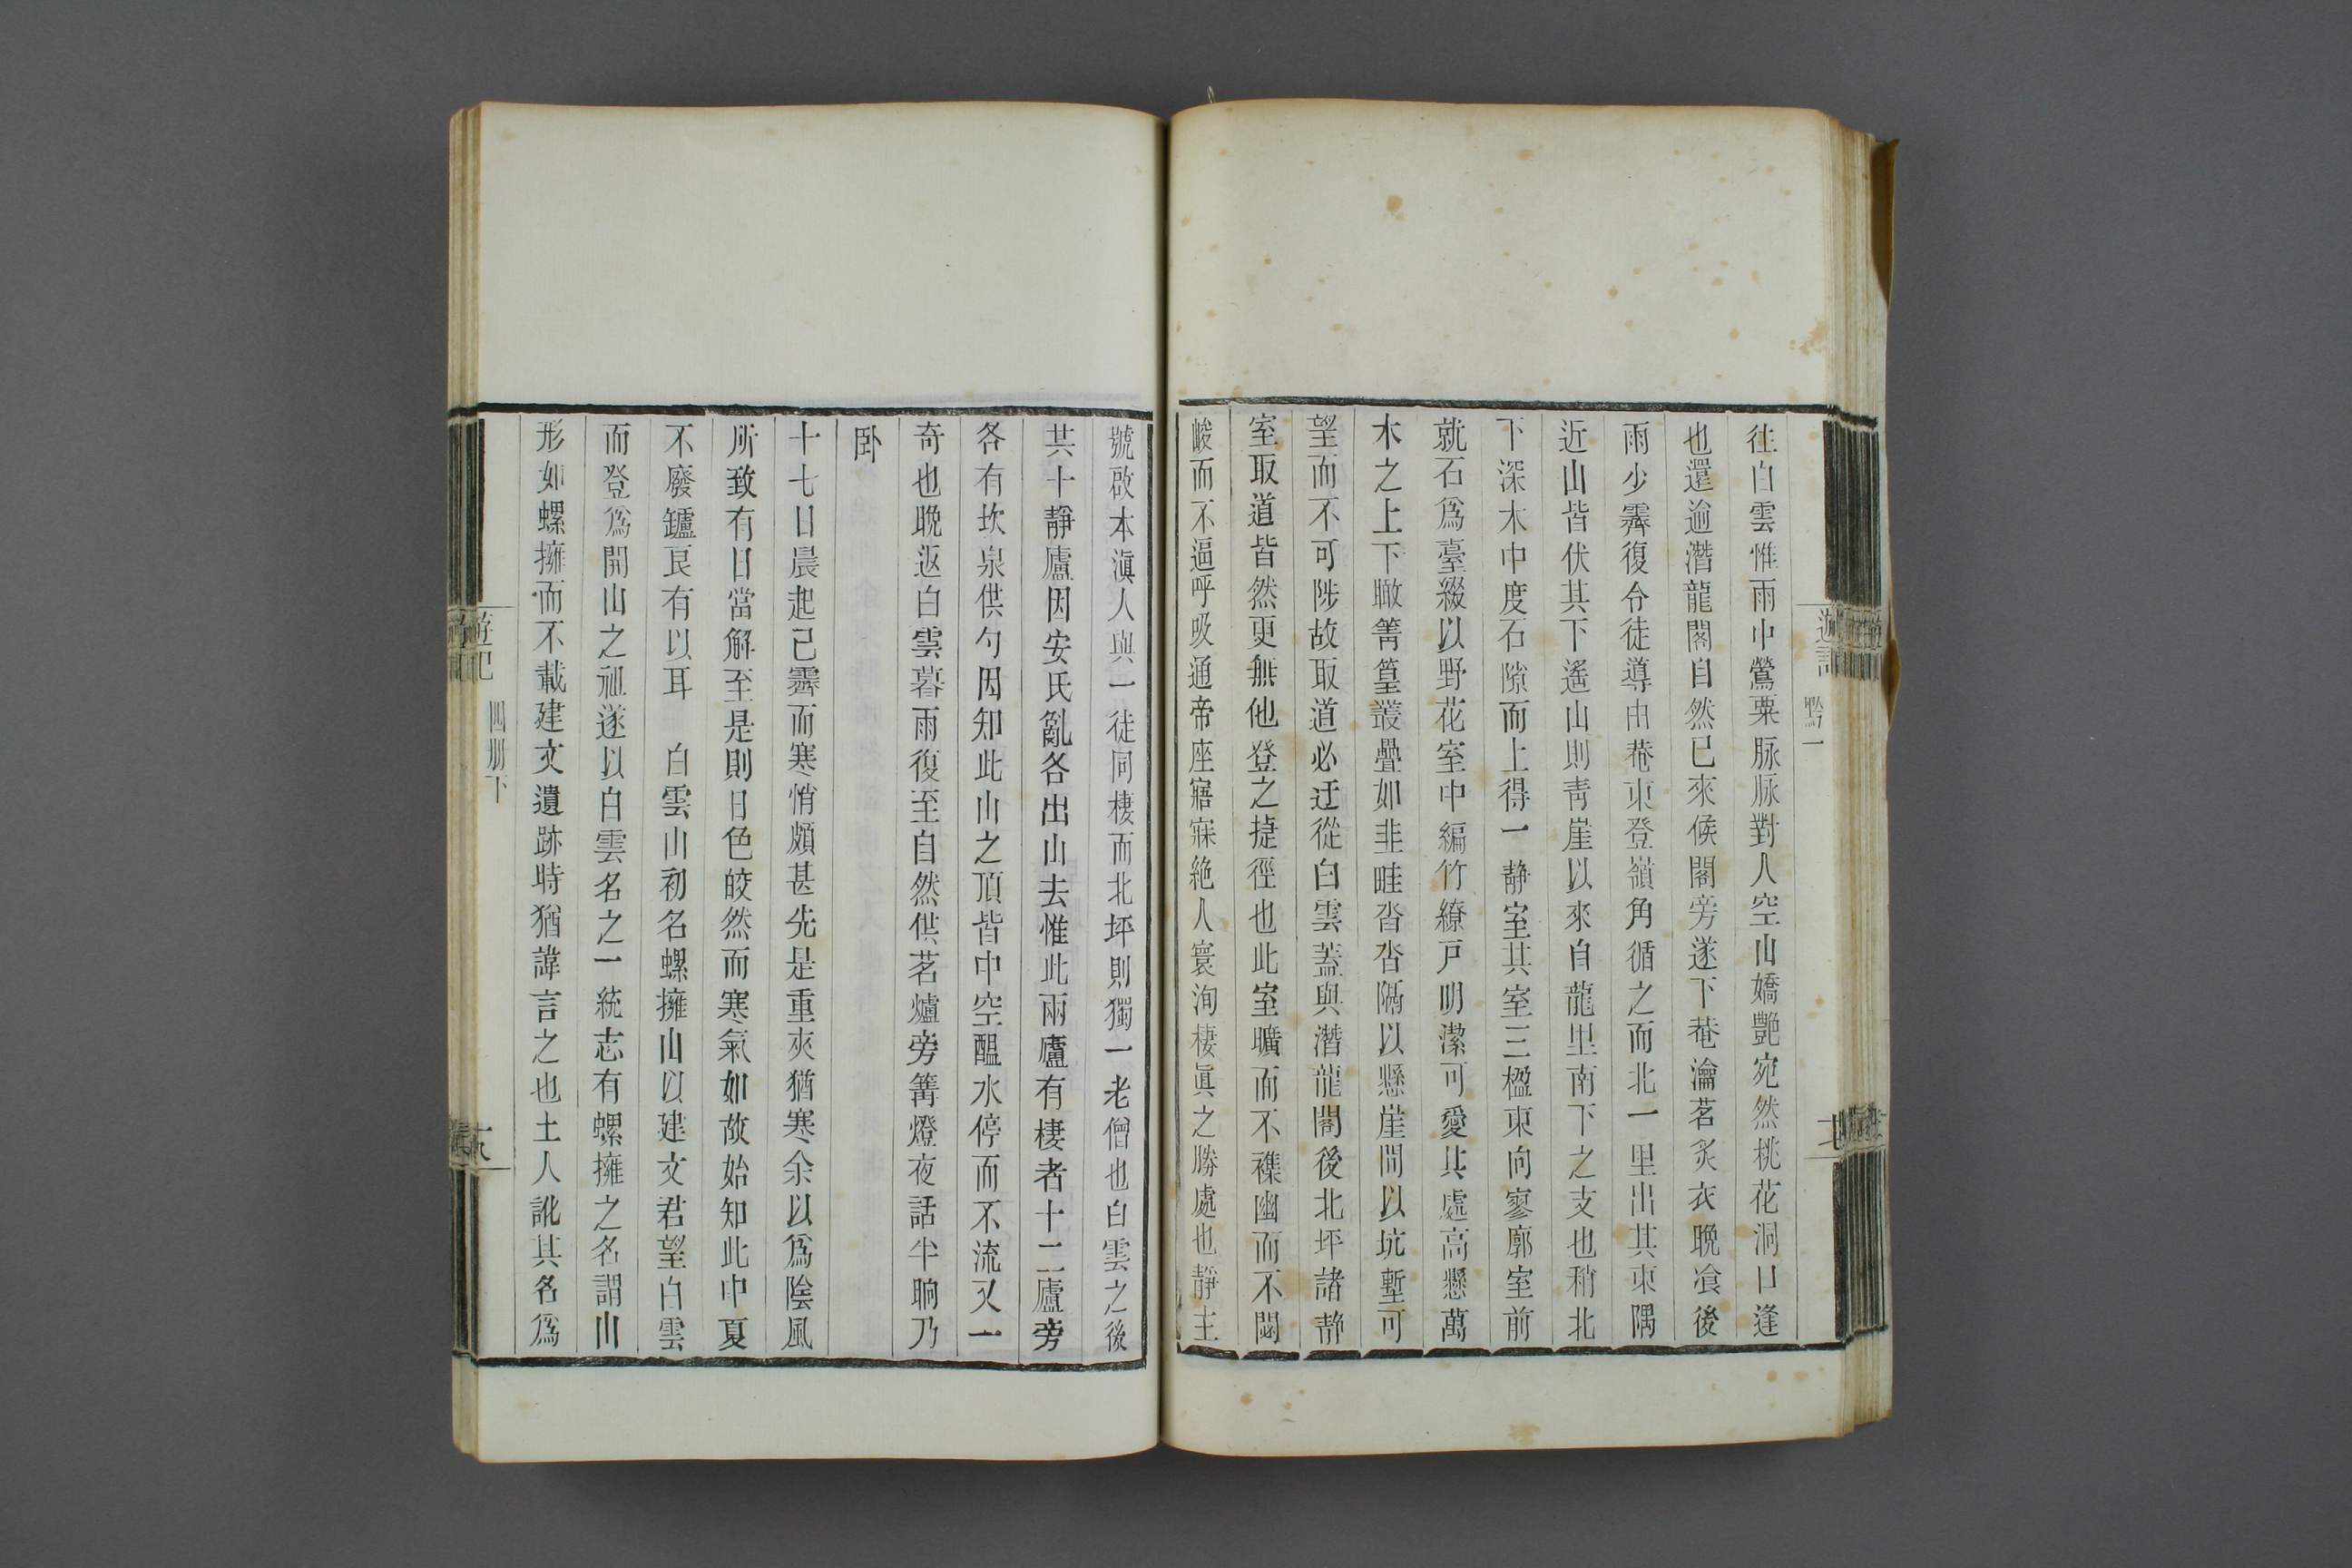 往白雲惟雨中鶯粟脉脉對人空山嬌艷宛然桃花洞口逢
也還逾潛龍閣自然已來候閣旁遂下菴瀹茗炙衣晚飡後
雨少霽復令徒導由菴東登嶺角循之而北一里出其東隅
近山皆伏其下遙山則靑崖以來自龍里南下之支也稍北
下深木中度石隙而上得一靜室其室三楹東向寥廓室前
就石爲臺綴以野花室中編竹繚戸明潔可愛其處高懸萬
木之上下瞰箐篁叢疊如韭畦沓沓隔以懸崖間以坑塹可
望而不可陟故取道必迂從白雲蓋與潛龍閣後北坪諸靜
室取道皆然更無他登之捷徑也此室曠而不襍幽而不閟
峻而不逼呼吸通帝座寤寐絶人寰洵棲眞之勝處也靜主
遊記
黔一
號啟本滇人與一徒同棲而北坪則獨一老僧也白雲之後
共十靜廬因安氏亂各出山去惟此兩廬有棲者十二廬旁
各有坎泉供勺因知此山之頂皆中空醞水停而不流又一
奇也晚返白雲暮雨復至自然供茗爐旁篝燈夜話半晌乃
卧
十七日晨起已霽而寒悄頗甚先是重夾猶寒余以爲陰風
所致有日當解至是則日色皎然而寒氣如故始知此中夏
不廢鑪良有以耳　白雲山初名螺擁山以建文君望白雲
而登爲開山之祖遂以白雲名之一統志有螺擁之名謂山
形如螺擁而不載建文遺跡時猶諱言之也土人訛其名爲
遊記
四册下